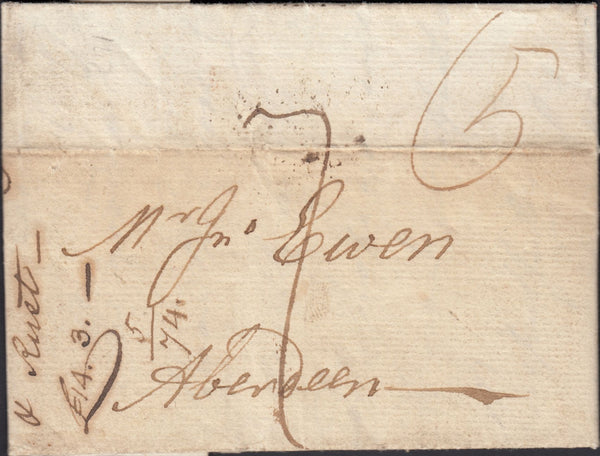 5
7
Mr Jno Ewen
Aberdeen
& Rust
£14.3.
5/74.